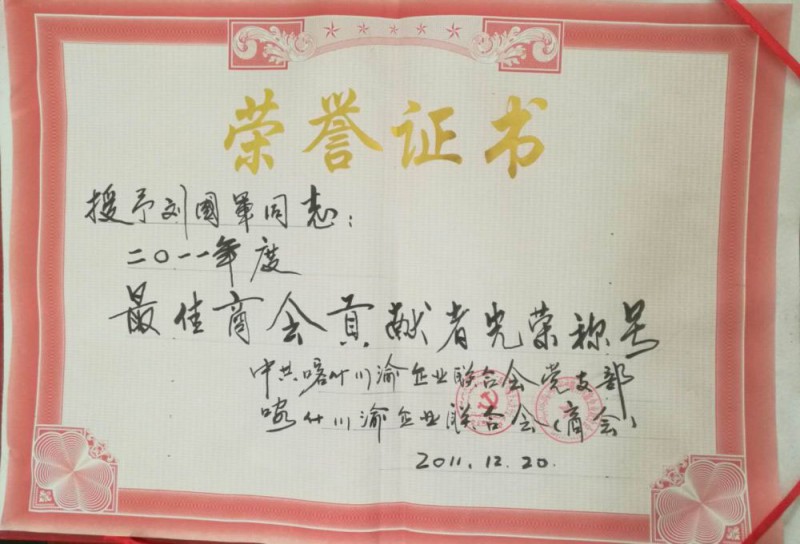 荣誉证书
授予刘國軍同志：
二〇一一年度
最佳商会贡献者光荣称号
中共喀什川渝企业联合会党支部
喀什川渝企业联合会（商会）
2011.12.20.